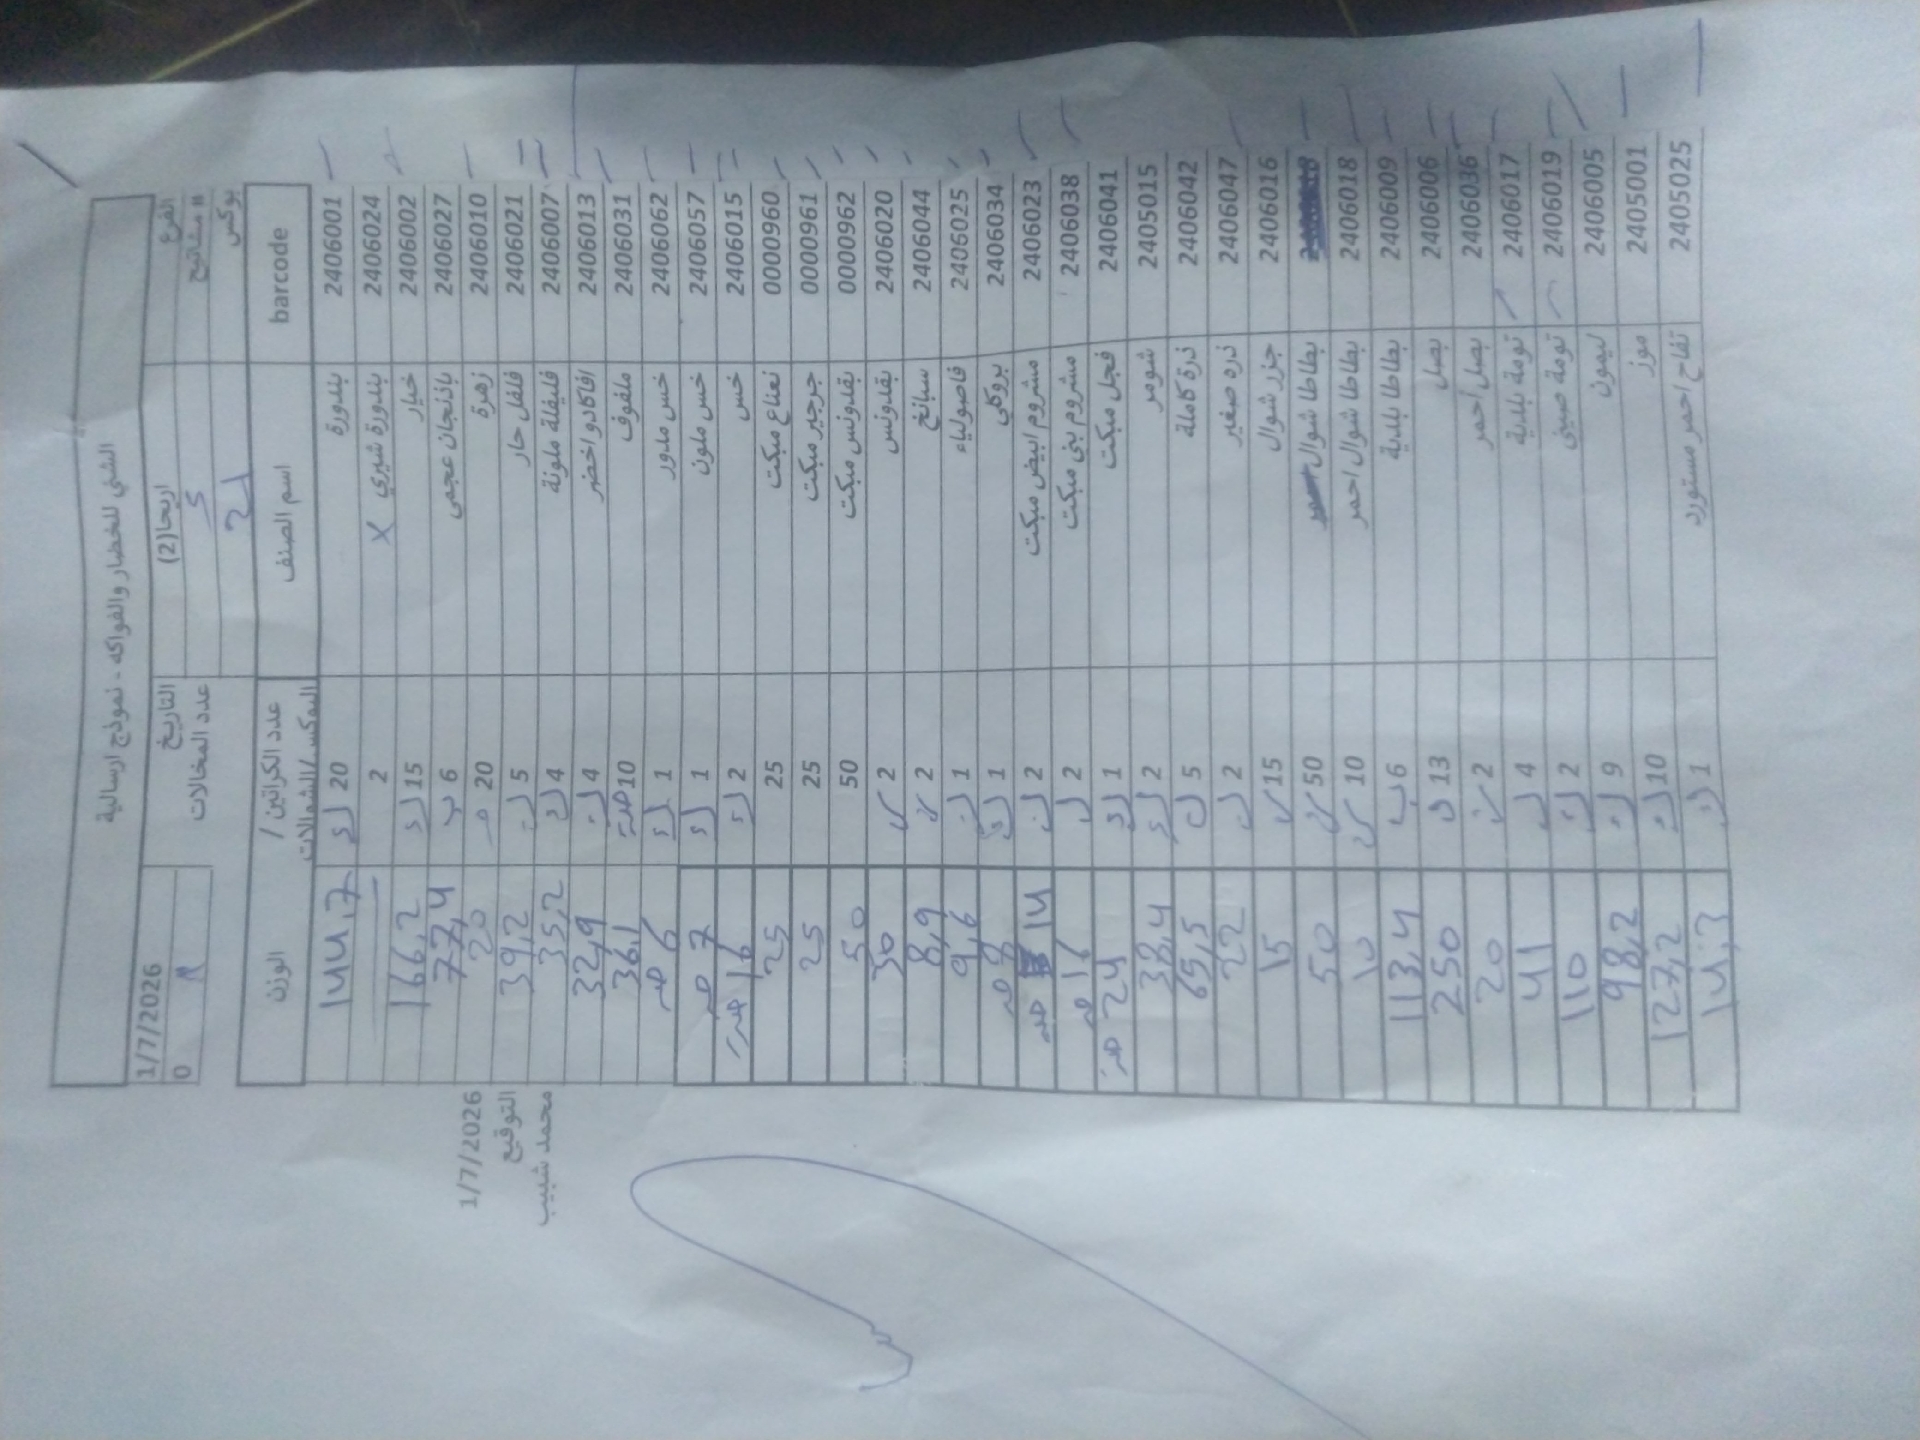 الشني للخضار والفواكه - نموذج ارسالية
الفرع اريحا(2) التاريخ 1/7/2026
# مشاتيح 5 عدد المخالات 0
بوكس 21
barcode اسم الصنف عدد الكراتين / البوكس/الشوالات الوزن
2406001 بندورة 20 144.7
2406024 بندورة شيري X 2
2406002 خيار 15 166,2
2406027 باذنجان عجمي 6 77,4
2406010 زهرة 20 20
2406021 فلفل حار 5 39,2
2406007 فليفلة ملونة 4 35,2
2406013 افاكادو اخضر 4 32,9
2406031 ملفوف 10 36,1
2406062 خس مدور 1 6
2406057 خس ملون 1 7
2406015 خس 2 16
0000960 نعناع مبكت 25 25
0000961 جرجير مبكت 25 25
0000962 بقدونس مبكت 50 50
2406020 بقدونس 2 30
2406044 سبانخ 2 8,9
2406025 فاصولياء 1 9,6
2406034 بروكلي 1 8
2406023 مشروم ابيض مبكت 2 14
2406038 مشروم بني مبكت 2 16
2406041 فجل مبكت 1 24
2405015 شومر 2 38,4
2406042 ذرة كاملة 5 65,5
2406047 ذره صغير 2 22
2406016 جزر شوال 15 15
بطاطا شوال 50 50
2406018 بطاطا شوال احمر 10 10
2406009 بطاطا بلدية 6 113,4
2406006 بصل 13 250
2406036 بصل احمر 2 20
2406017 تومة بلدية 4 41
2406019 تومة صيني 2 110
2406005 ليمون 9 98,2
2405001 موز 10 127,2
2405025 تفاح احمر مستورد 1 14,3
1/7/2026
التوقيع
محمد شبيب